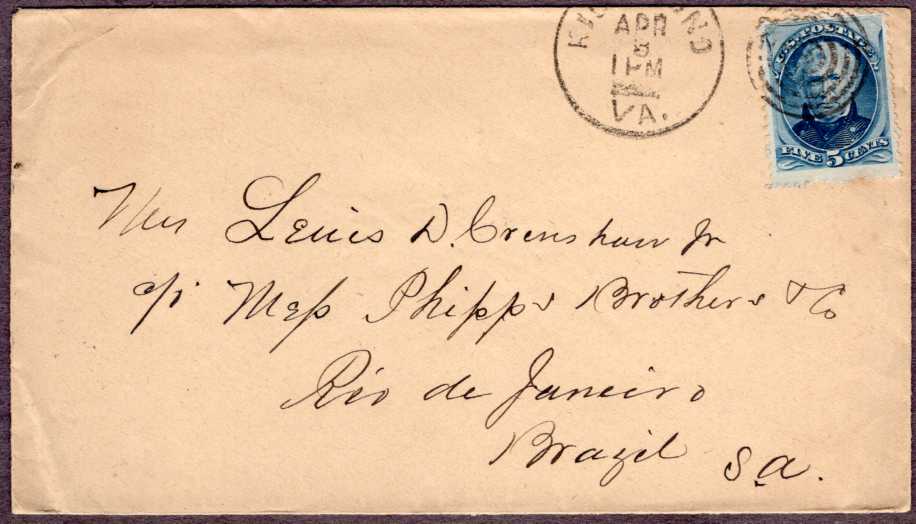 RICHMOND
APR
8
1 PM
VA.
U.S. POSTAGE
FIVE 5 CENTS
Mrs Lewis D. Crenshaw Jr
c/o Mess Phipps Brothers & Co
Rio de Janeiro
Brazil S.A.